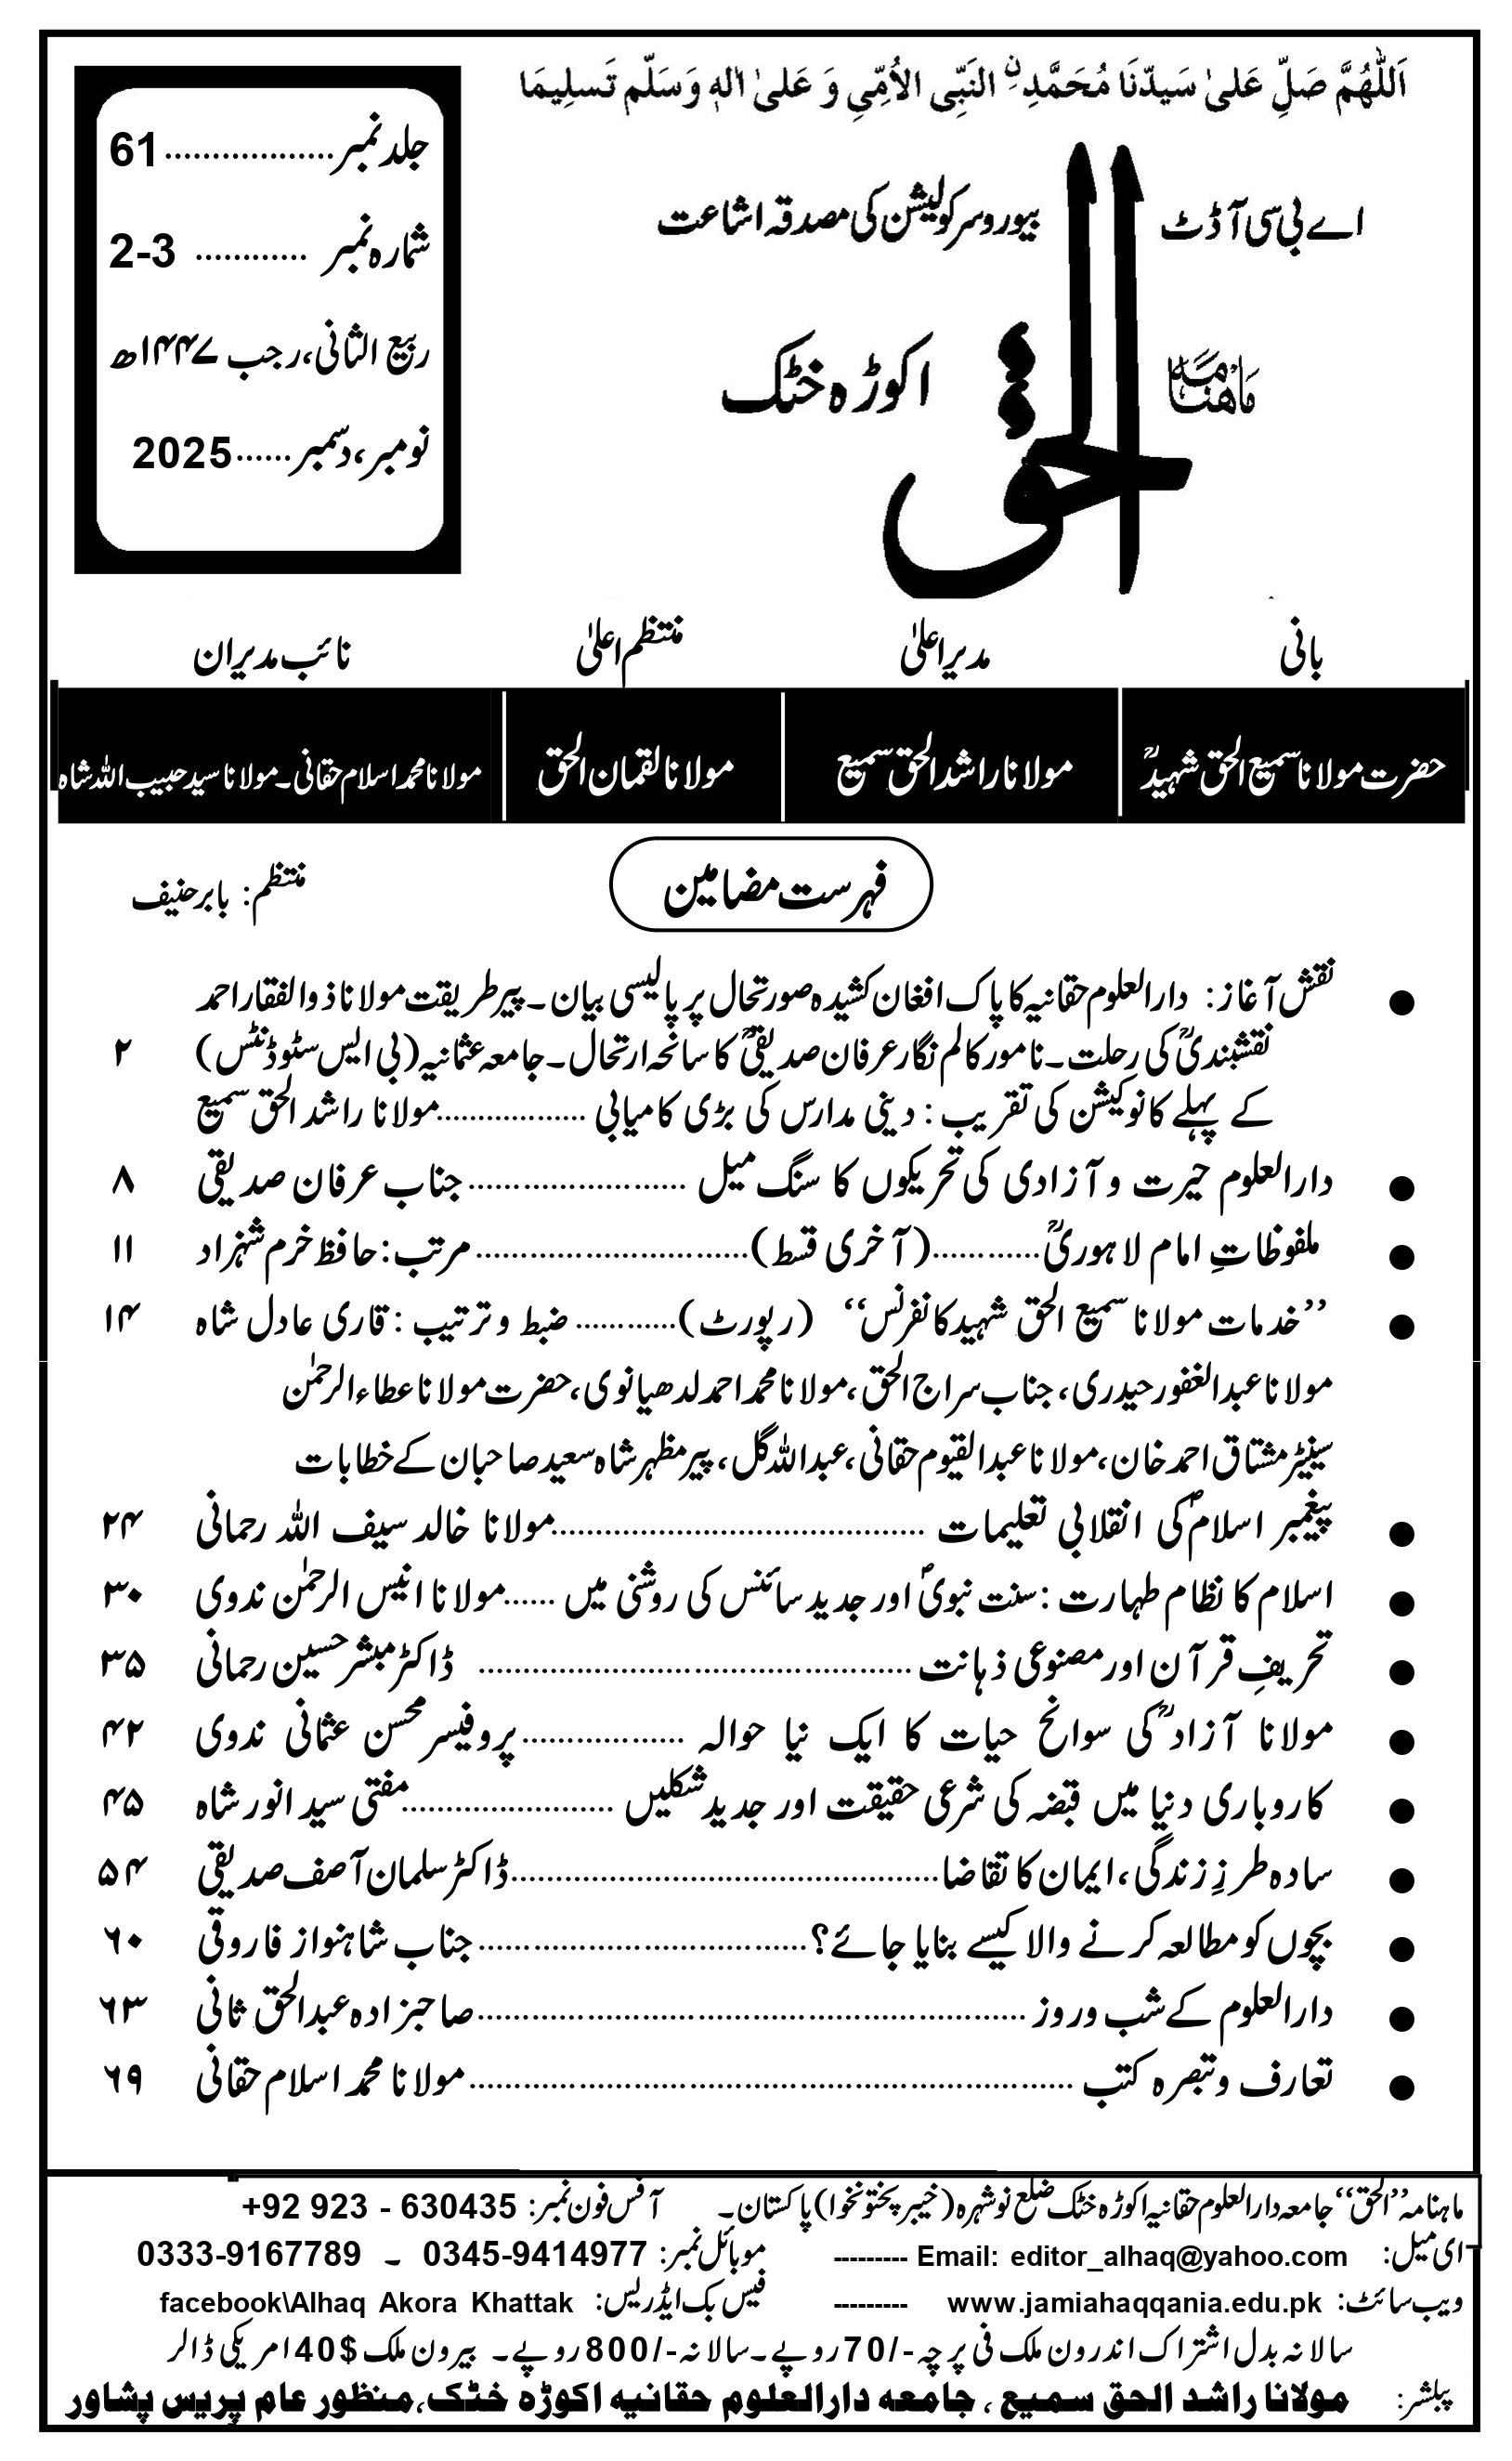 اَللّٰهُمَّ صَلِّ عَلىٰ سَیِدّنَا مُحَمَّدِنِ النَبِّی الاُمِّیِ وَ عَلیٰ اٰلهٖ وَسَلّم تَسلِیمَا
جلد نمبر..................61
شمارہ نمبر ............ 2-3
ربیع الثانی،رجب ۱۴۴۷ھ
نومبر،دسمبر......2025
اے بی سی آڈٹ بیورو سرکولیشن کی مصدقہ اشاعت
ماهنامه الحق اکوڑہ خٹک
بانی مدیراعلیٰ منتظم اعلیٰ نائب مدیران
حضرت مولانا سمیع الحق شہیدؒ مولانا راشد الحق سمیع مولانا لقمان الحق مولانا محمد اسلام حقانی۔مولانا سید حبیب اللہ شاہ
فہرست مضامین
منتظم: بابر حنیف
● نقش آغاز: دارالعلوم حقانیہ کا پاک افغان کشیدہ صورتحال پر پالیسی بیان۔ پیر طریقت مولانا ذوالفقار احمد
نقشبندیؒ کی رحلت۔ نامور کالم نگار عرفان صدیقیؒ کا سانحہ ارتحال۔ جامعہ عثمانیہ (بی ایس سٹوڈنٹس) ۲
کے پہلے کانوکیشن کی تقریب : دینی مدارس کی بڑی کامیابی ..................مولانا راشد الحق سمیع
● دارالعلوم حیرت و آزادی کی تحریکوں کا سنگ میل ........................جناب عرفان صدیقی ۸
● ملفوظاتِ امام لاہوریؒ............(آخری قسط)..............................مرتب: حافظ خرم شہزاد ۱۱
● ’’خدمات مولانا سمیع الحق شہید کانفرنس‘‘ (رپورٹ)........... ضبط وترتیب : قاری عادل شاہ ۱۴
مولانا عبدالغفور حیدری، جناب سراج الحق، مولانا محمد احمد لدھیانوی، حضرت مولانا عطاء الرحمٰن
سینیٹر مشتاق احمد خان، مولانا عبدالقیوم حقانی، عبداللہ گل، پیر مظہر شاہ سعید صاحبان کے خطابات
● پیغمبر اسلامؐ کی انقلابی تعلیمات .........................................مولانا خالد سیف اللہ رحمانی ۲۴
● اسلام کا نظام طہارت : سنت نبویؐ اور جدید سائنس کی روشنی میں ......مولانا انیس الرحمٰن ندوی ۳۰
● تحریفِ قرآن اور مصنوعی ذہانت ............................................... ڈاکٹر مبشر حسین رحمانی ۳۵
● مولانا آزادؒ کی سوانح حیات کا ایک نیا حوالہ ..................پروفیسر محسن عثمانی ندوی ۴۲
● کاروباری دنیا میں قبضہ کی شرعی حقیقت اور جدید شکلیں .......................مفتی سید انور شاہ ۴۵
● سادہ طرزِ زندگی، ایمان کا تقاضا...............................................ڈاکٹر سلمان آصف صدیقی ۵۴
● بچوں کو مطالعہ کرنے والا کیسے بنایا جائے؟....................................جناب شاہنواز فاروقی ۶۰
● دارالعلوم کے شب و روز ............................................................صاحبزادہ عبدالحق ثانی ۶۳
● تعارف وتبصرہ کتب ..................................................................مولانا محمد اسلام حقانی ۶۹
ماہنامہ ’’الحق‘‘ جامعہ دارالعلوم حقانیہ اکوڑہ خٹک ضلع نوشہرہ (خیبر پختونخوا) پاکستان۔ آفس فون نمبر: +92 923 - 630435
ای میل: Email: editor_alhaq@yahoo.com --------- موبائل نمبر: 0345-9414977 ۔ 0333-9167789
ویب سائٹ: www.jamiahaqqania.edu.pk --------- فیس بک ایڈریس: facebook\Alhaq Akora Khattak
سالانہ بدل اشتراک اندرون ملک فی پرچہ -/70 روپے۔ سالانہ -/800 روپے۔ بیرون ملک $40 امریکی ڈالر
پبلشر: مولانا راشد الحق سمیع ، جامعہ دارالعلوم حقانیہ اکوڑہ خٹک، منظور عام پریس پشاور